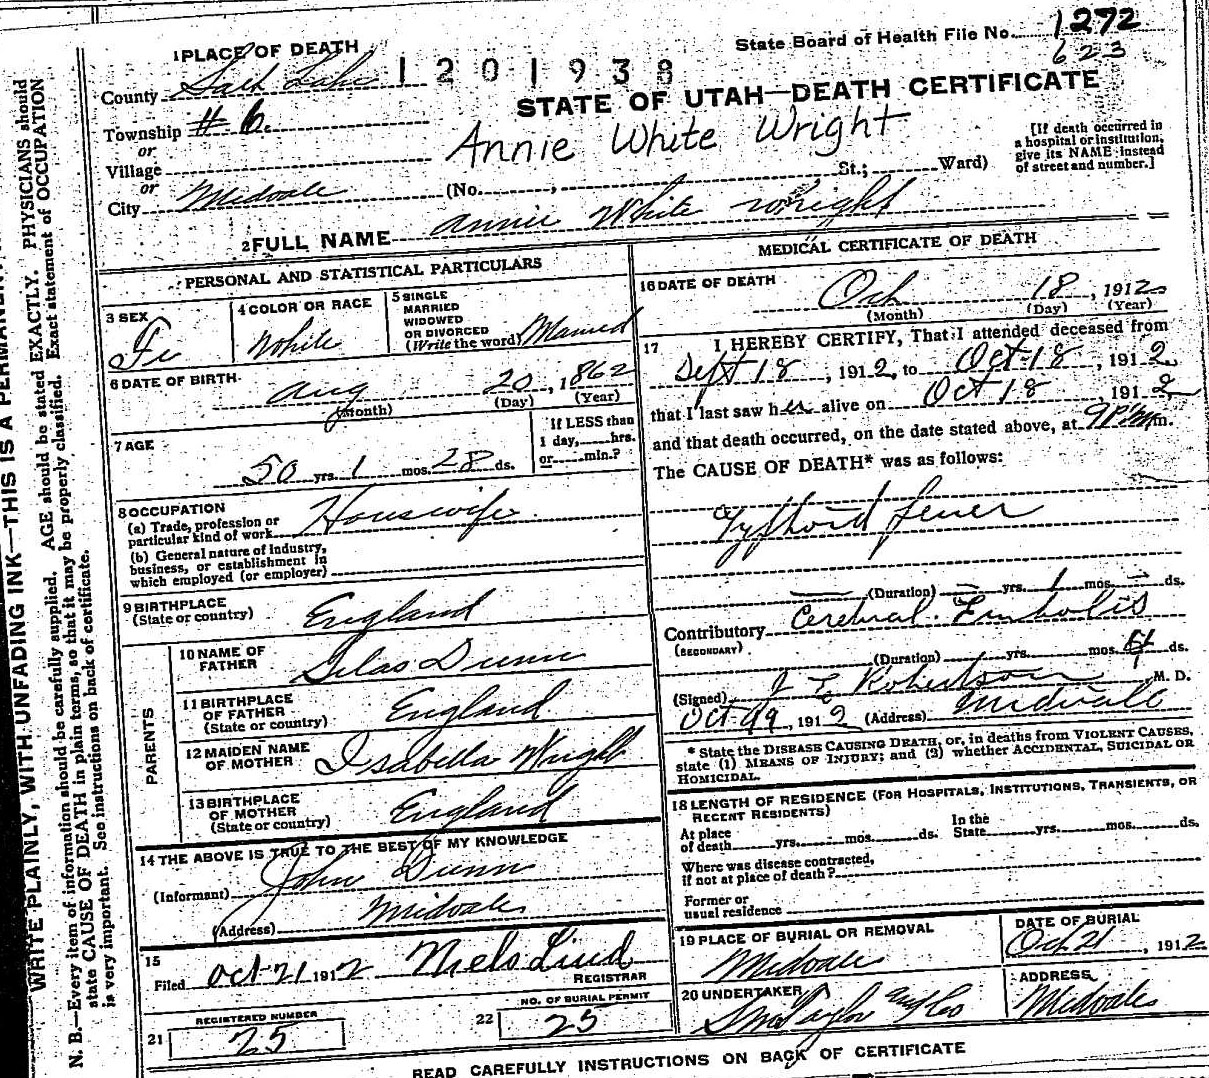 State Board of Health File No. 1272
623
1 PLACE OF DEATH
1201938
County Salt Lake
STATE OF UTAH—DEATH CERTIFICATE
Township # 6.
or
Annie White Wright
[If death occurred in a hospital or institution, give its NAME instead of street and number.]
Village
or
City Midvale (No. , St.; Ward)
2 FULL NAME Annie White Wright
PERSONAL AND STATISTICAL PARTICULARS
3 SEX
Fe
4 COLOR OR RACE
White
5 SINGLE
MARRIED
WIDOWED
OR DIVORCED
(Write the word) Married
6 DATE OF BIRTH
Aug 20, 1862
(Month) (Day) (Year)
7 AGE
50 yrs. 1 mos. 28 ds.
If LESS than
1 day, hrs.
or min.?
8 OCCUPATION
(a) Trade, profession or
particular kind of work Housewife
(b) General nature of Industry,
business, or establishment in
which employed (or employer)
9 BIRTHPLACE
(State or country) England
PARENTS
10 NAME OF
FATHER Silas Dunn
11 BIRTHPLACE
OF FATHER
(State or country) England
12 MAIDEN NAME
OF MOTHER Isabella Wright
13 BIRTHPLACE
OF MOTHER
(State or country) England
14 THE ABOVE IS TRUE TO THE BEST OF MY KNOWLEDGE
(Informant) John Dunn
(Address) Midvale
15
Filed Oct 21 1912 Niels Lind
REGISTRAR
21 REGISTERED NUMBER
25
22 NO. OF BURIAL PERMIT
25
MEDICAL CERTIFICATE OF DEATH
16 DATE OF DEATH
Oct 18, 1912
(Month) (Day) (Year)
17 I HEREBY CERTIFY, That I attended deceased from
Sept 18, 1912, to Oct 18, 1912,
that I last saw her alive on Oct 18 1912
and that death occurred, on the date stated above, at 9 P m.
The CAUSE OF DEATH* was as follows:
Typhoid fever
(Duration) — yrs. 1 mos. — ds.
Contributory Cerebral Embolis
(SECONDARY)
(Duration) yrs. mos. 4 ds.
(Signed) Robertson M. D.
Oct 19, 1912 (Address) Midvale
* State the DISEASE CAUSING DEATH, or, in deaths from VIOLENT CAUSES,
state (1) MEANS OF INJURY; and (2) whether ACCIDENTAL, SUICIDAL OR
HOMICIDAL.
18 LENGTH OF RESIDENCE (FOR HOSPITALS, INSTITUTIONS, TRANSIENTS, OR
RECENT RESIDENTS)
At place
of death yrs. mos. ds.
In the
State yrs. mos. ds.
Where was disease contracted,
if not at place of death?
Former or
usual residence
19 PLACE OF BURIAL OR REMOVAL
Midvale
DATE OF BURIAL
Oct 21, 1912
20 UNDERTAKER
Taylor
ADDRESS
Midvale
READ CAREFULLY INSTRUCTIONS ON BACK OF CERTIFICATE
WRITE PLAINLY, WITH UNFADING INK—THIS IS A PERMANENT
N. B.—Every item of information should be carefully supplied. AGE should be stated EXACTLY. PHYSICIANS should
state CAUSE OF DEATH in plain terms, so that it may be properly classified. Exact statement of OCCUPATION
is very important. See instructions on back of certificate.